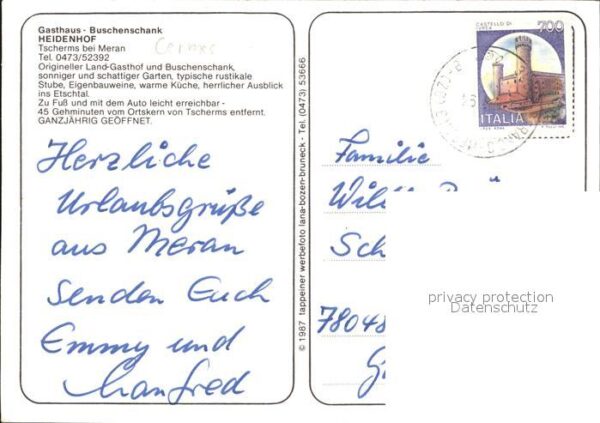 Gasthaus - Buschenschank
HEIDENHOF
Tscherms bei Meran
Tel. 0473/52392
Origineller Land-Gasthof und Buschenschank,
sonniger und schattiger Garten, typische rustikale
Stube, Eigenbauweine, warme Küche, herrlicher Ausblick
ins Etschtal.
Zu Fuß und mit dem Auto leicht erreichbar -
45 Gehminuten vom Ortskern von Tscherms entfernt.
GANZJÄHRIG GEÖFFNET.
Herzliche
Urlaubsgrüße
aus Meran
senden Euch
Emmy und
Manfred
© 1987 tappeiner werbefoto lana-bozen-bruneck - Tel. (0473) 53666
CASTELLO DI
700
ITALIA
Familie
Sch
78048
privacy protection
Datenschutz